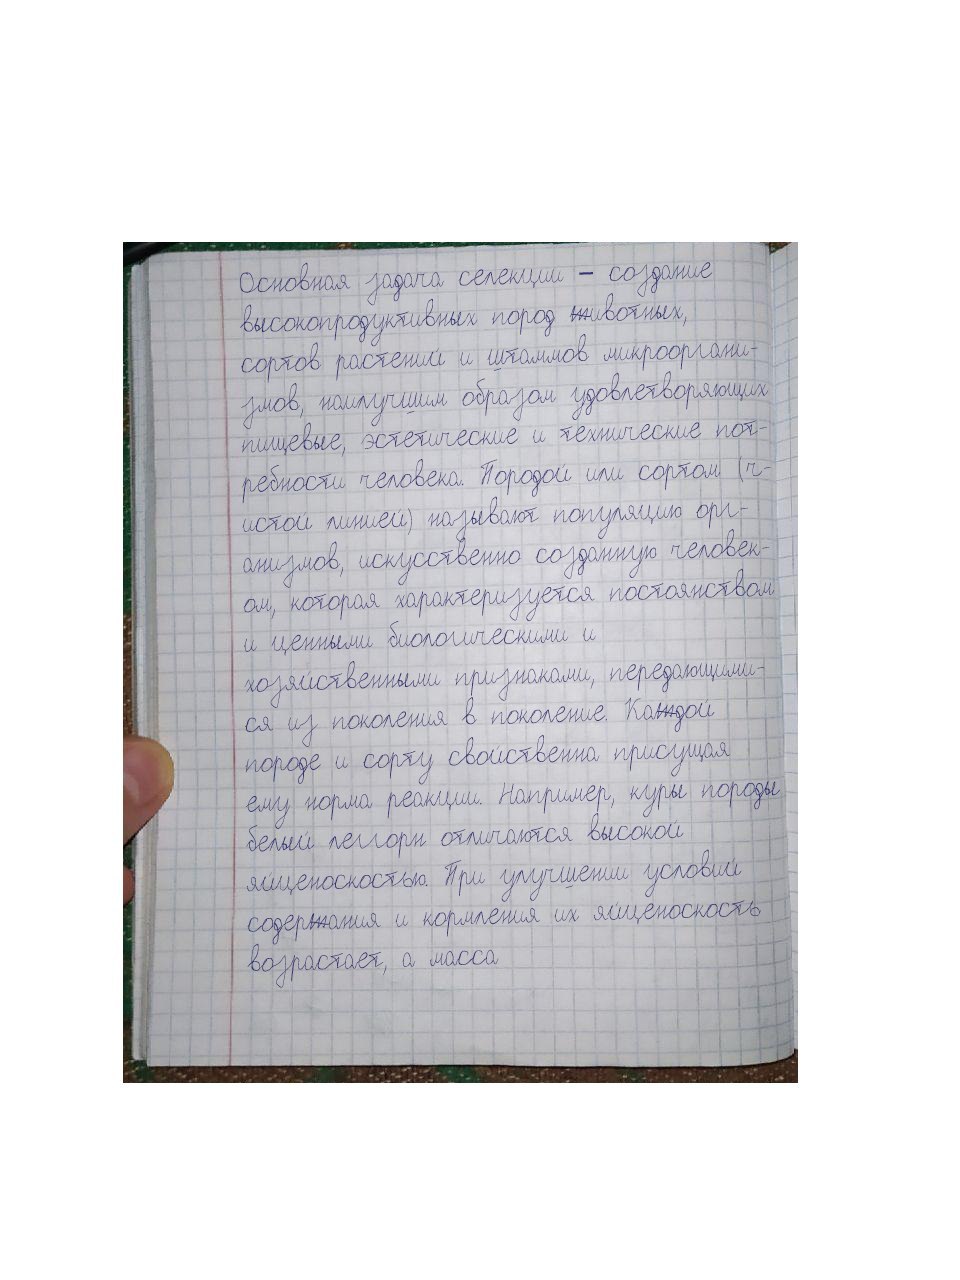 Основная задача селекции – создание
высокопродуктивных пород животных,
сортов растений и штаммов микрооргани-
змов, наилучшим образом удовлетворяющих
пищевые, эстетические и технические пот-
ребности человека. Породой или сортом (ч-
истой линией) называют популяцию орг-
анизмов, искусственно созданную человек-
ом, которая характеризуется постоянством
и ценными биологическими и
хозяйственными признаками, передающими-
ся из поколения в поколение. Каждой
породе и сорту свойственна присущая
ему норма реакции. Например, куры породы
белый леггорн отличаются высокой
яйценоскостью. При улучшении условий
содержания и кормления их яйценоскость
возрастает, а масса